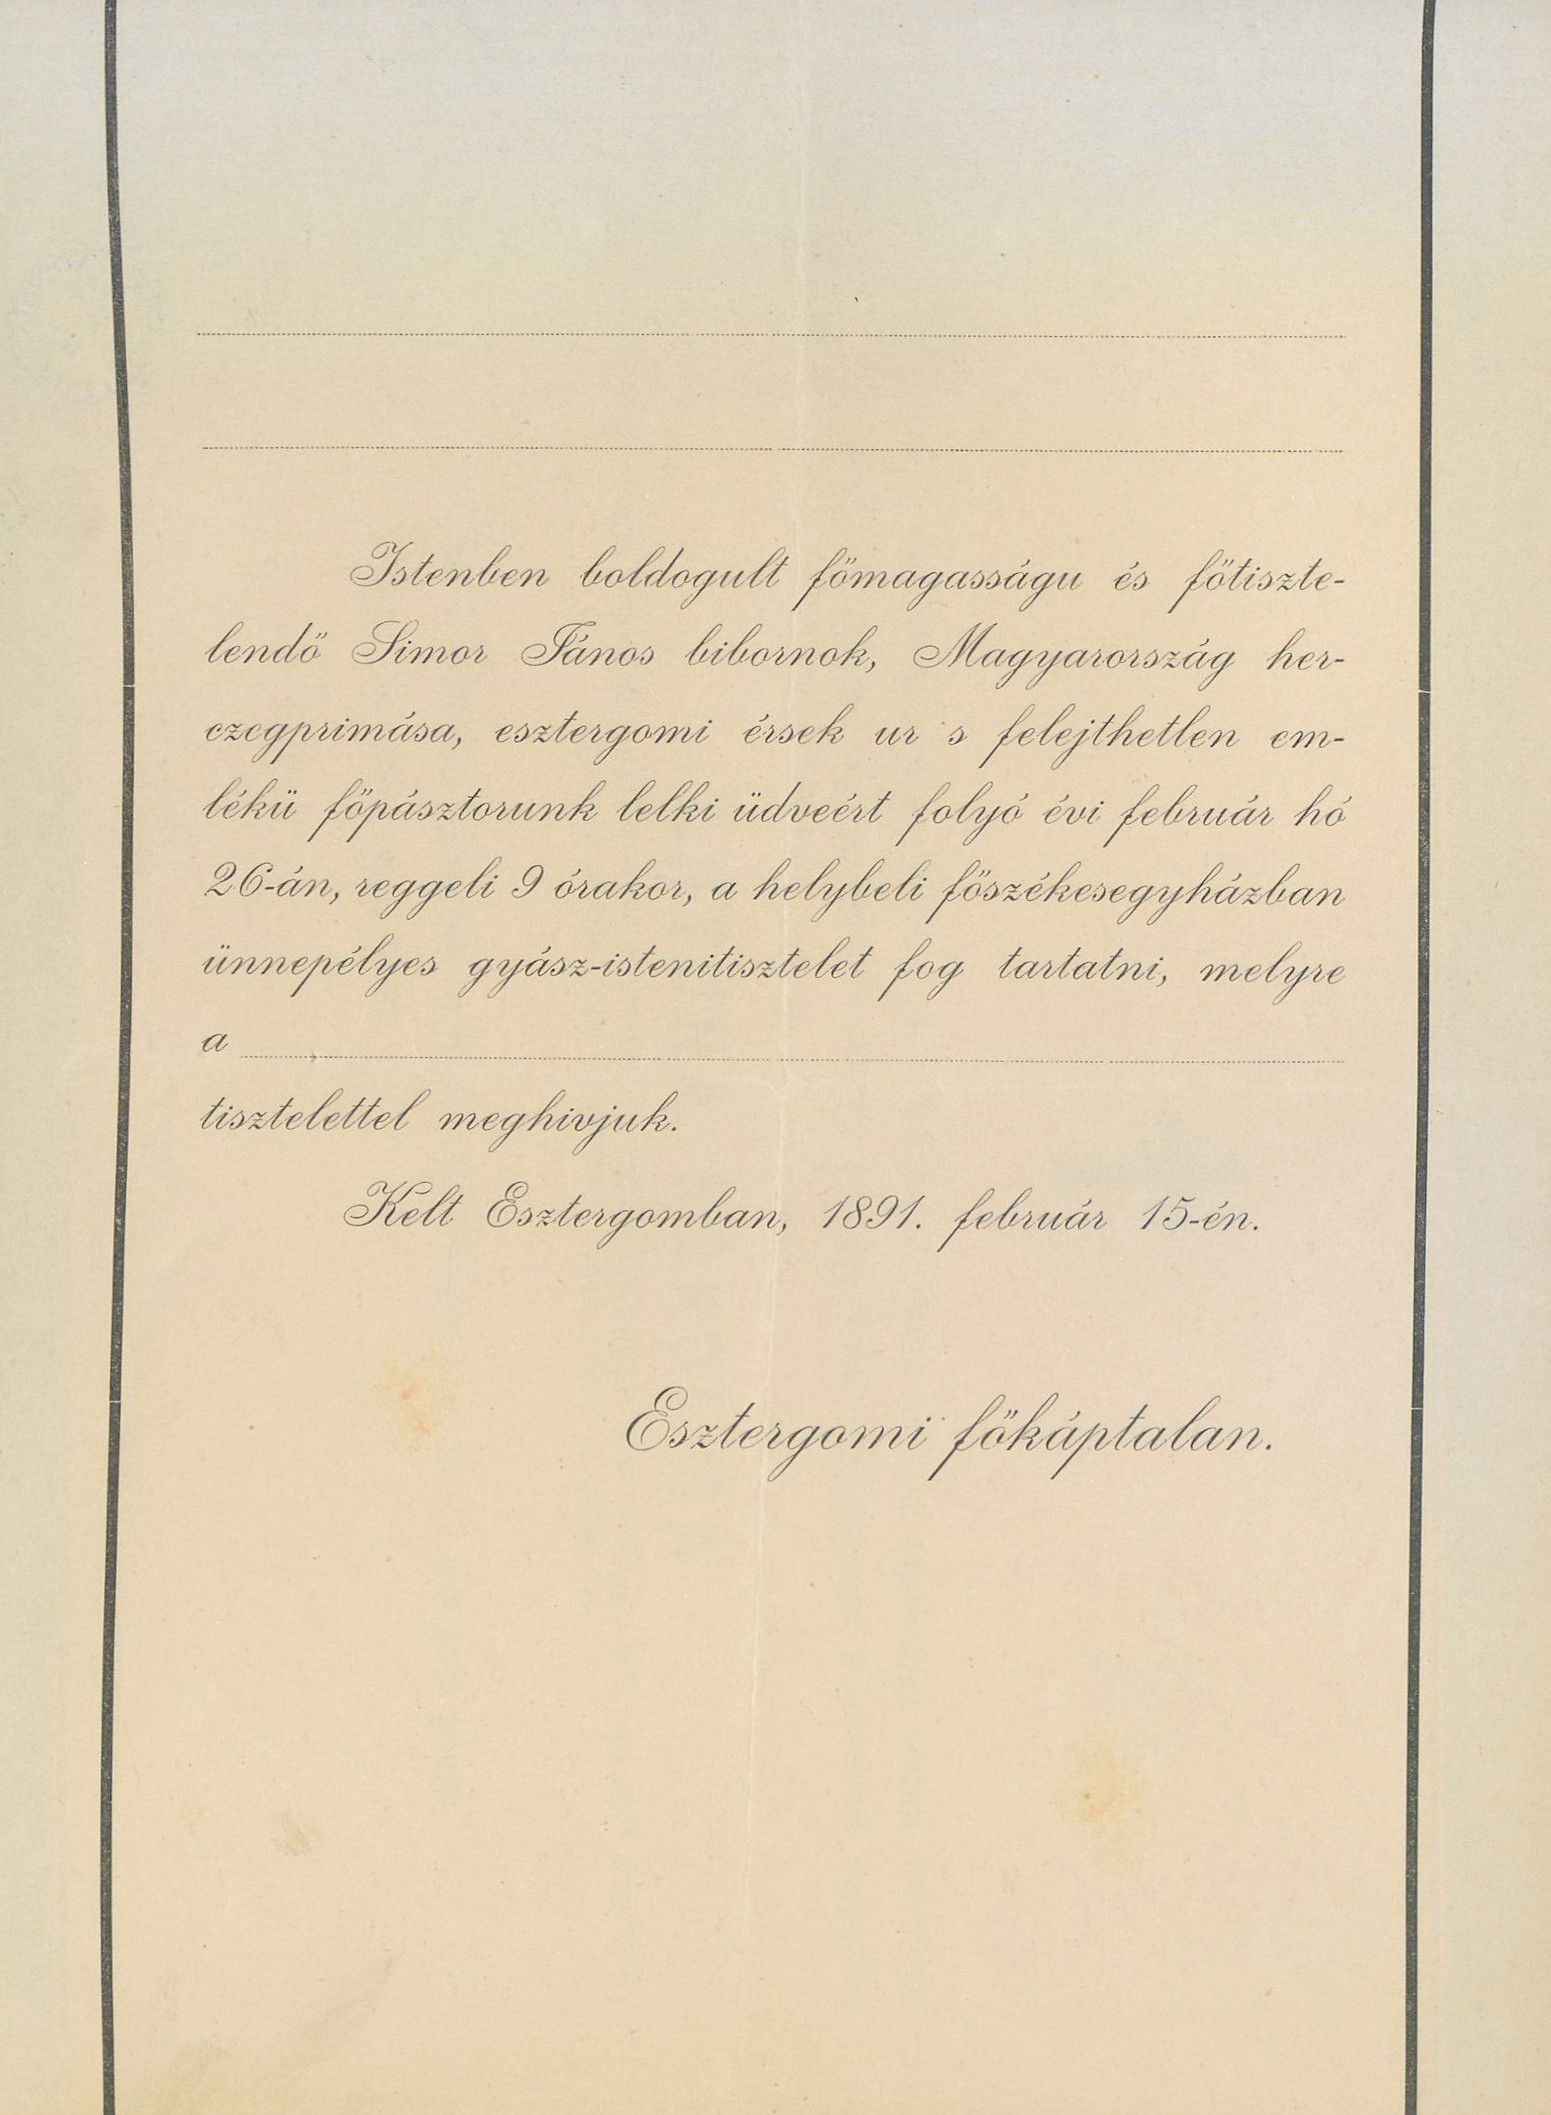 Istenben boldogult főmagasságu és főtiszte-
lendő Simor János bibornok, Magyarország her-
czegprimása, esztergomi érsek ur s felejthetlen em-
lékü főpásztorunk lelki üdveért folyó évi február hó
26-án, reggeli 9 órakor, a helybeli főszékesegyházban
ünnepélyes gyász-istenitisztelet fog tartatni, melyre
a
tisztelettel meghivjuk.
Kelt Esztergomban, 1891. február 15-én.
Esztergomi főkáptalan.